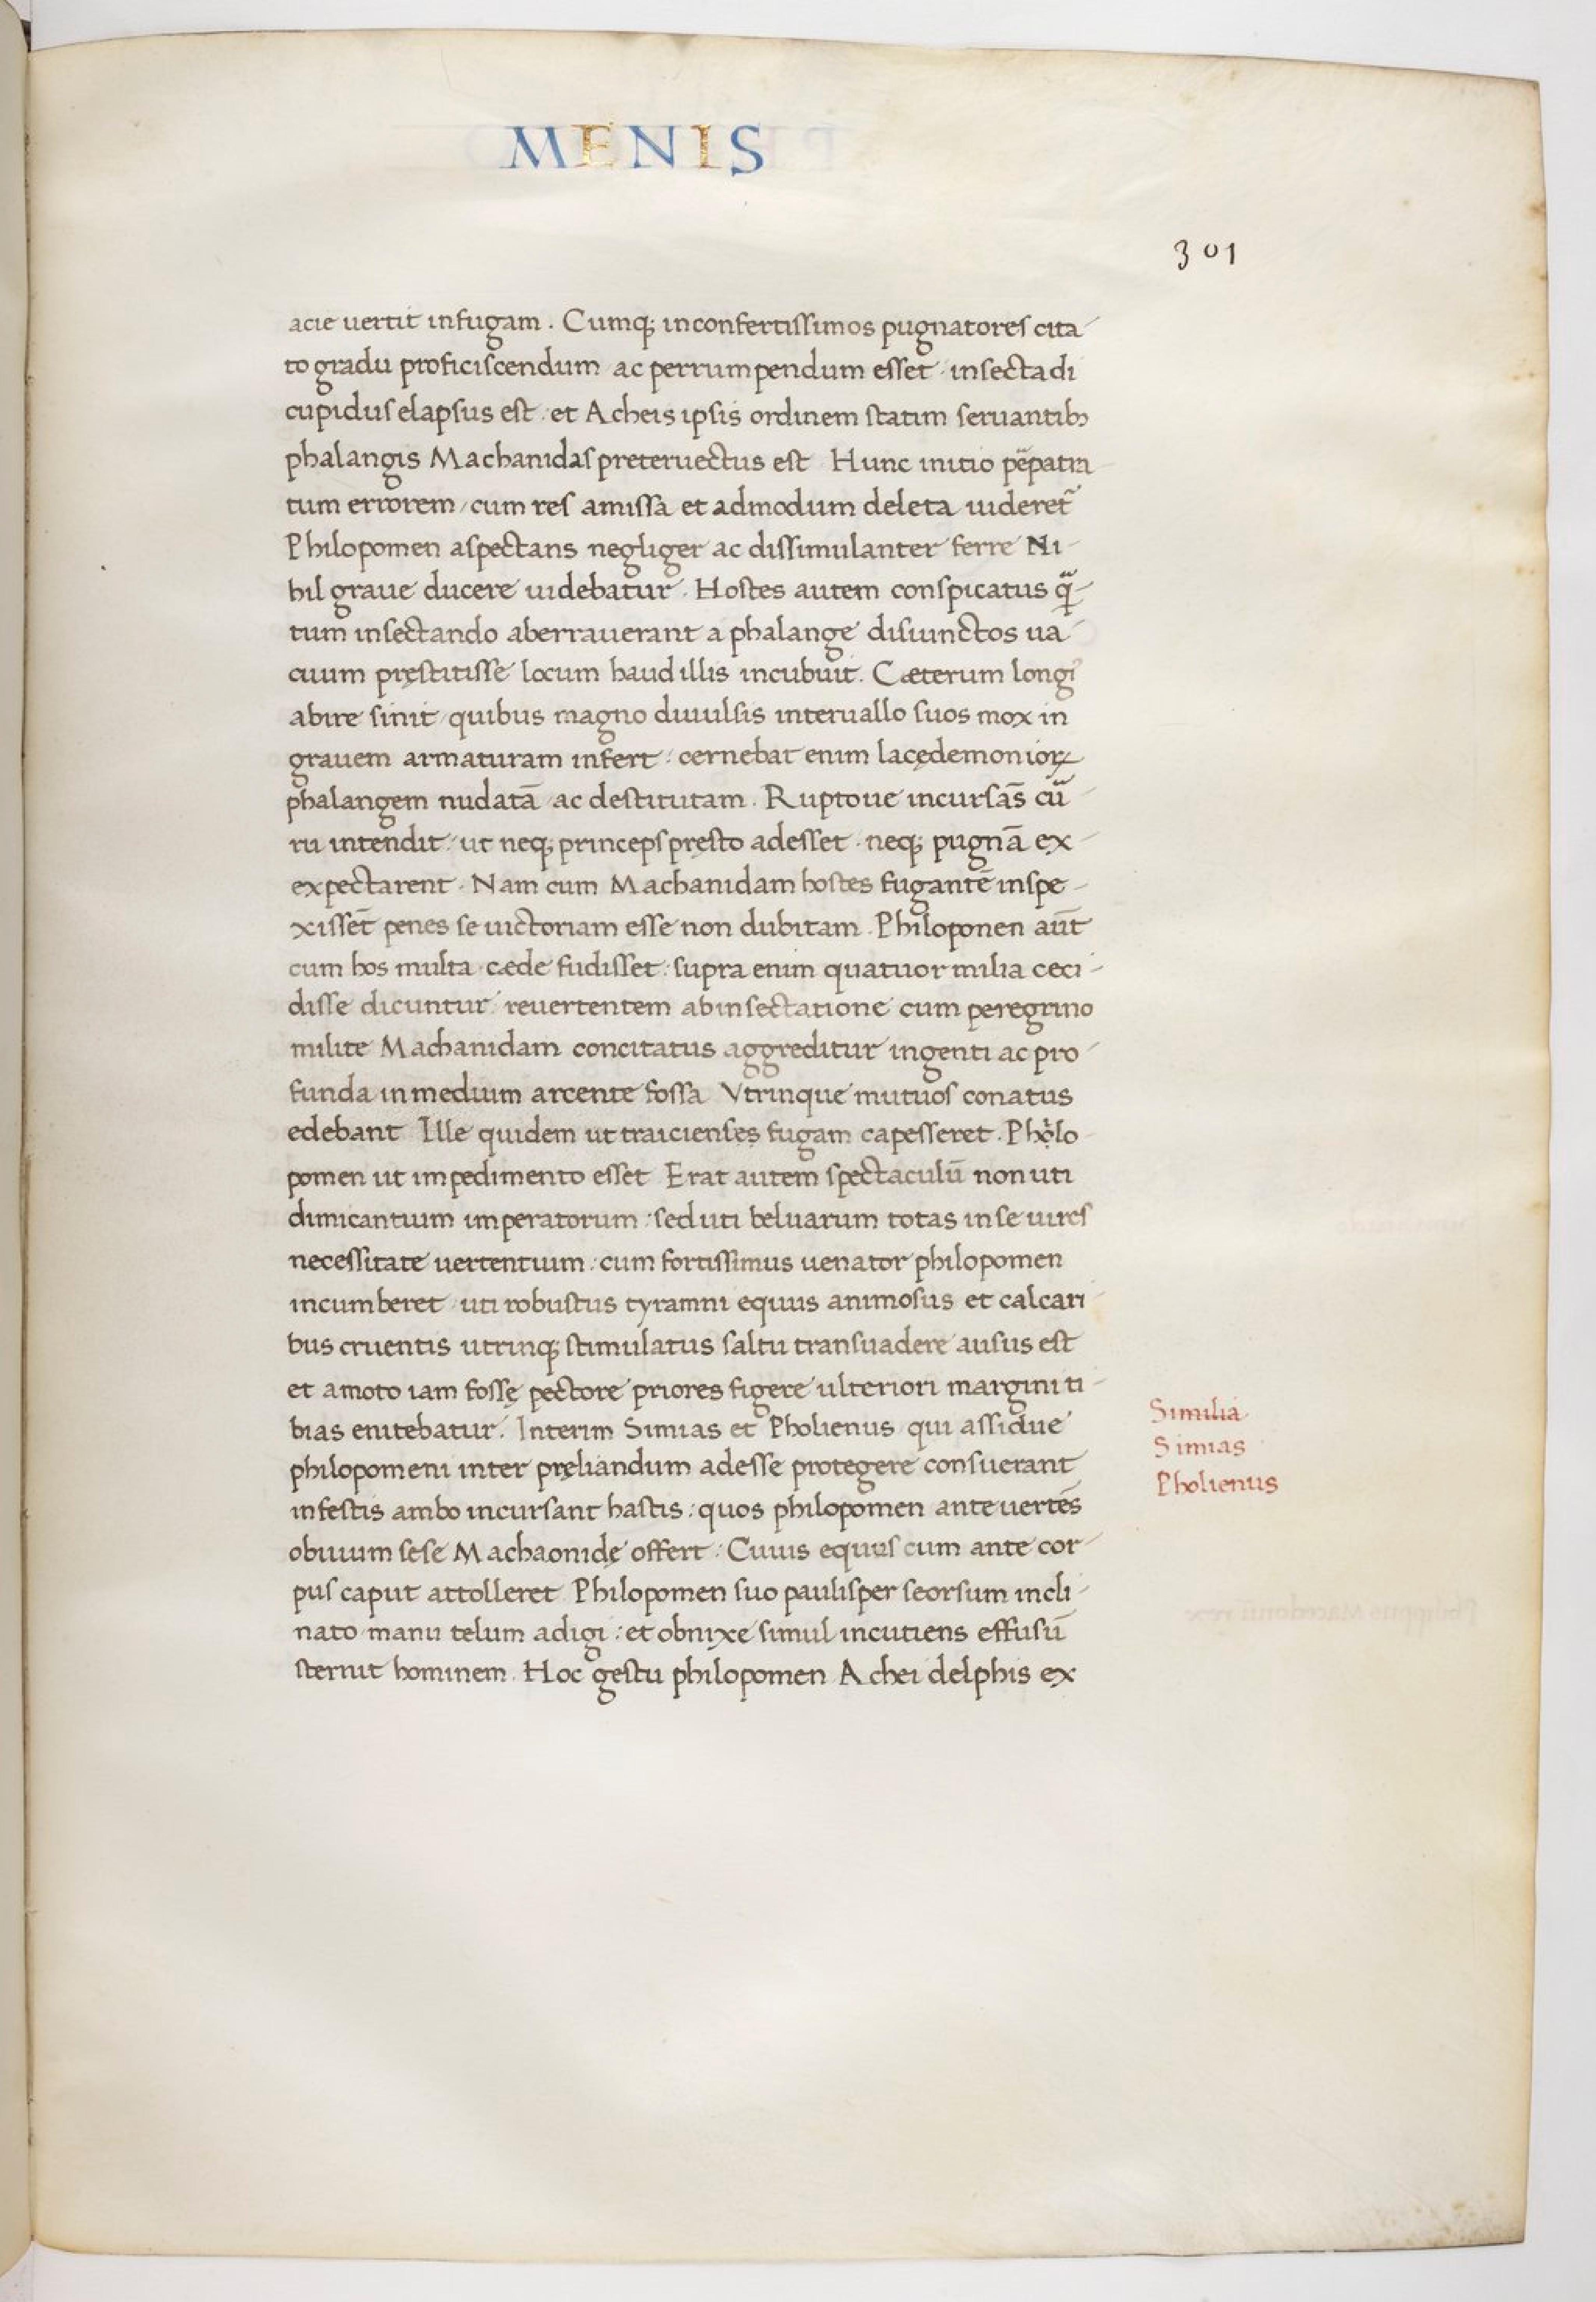 MENIS
301
acie uertit in fugam. Cumq; in confertissimos pugnatores cita-
to gradu proficiscendum ac perrumpendum esset insectadi
cupidus elapsus est et Acheis ipsis ordinem statim seruantibꝫ
phalangis Machanidas preteruectus est Hunc initio pēpatra
tum errorem/cum res amissa et admodum deleta uideret̄
Philopomen aspectans negliger ac dissimulanter ferre Ni-
hil graue ducere uidebatur. Hostes autem conspicatus
tum insectando aberrauerant a phalange disiunctos ua-
cuum pręstitisse locum haud illis incubuit. Cæterum longi
abire sinit quibus magno diuulsis interuallo suos mox in
grauem armaturam infert: cernebat enim lacędemonioꝝ
phalangem nudatā ac destitutam. Ruptoue incursās cū
ru intendit: ut neq; princeps pręsto adesset neq; pugnā ex-
expectarent. Nam cum Machanidam hostes fugantē inspe-
xissēt penes se uictoriam esse non dubitam. Philoponen aūt
cum hos multa cæde fudisset: supra enim quatuor milia ceci-
disse dicuntur reuertentem ab insectatione cum peregrino
milite Machanidam concitatus aggreditur ingenti ac pro-
funda in medium arcente fossa Vtrinque mutuos conatus
edebant Ille quidem ut traicienses fugam capesseret. Pholo-
pomen ut impedimento esset Erat autem spectaculū non uti
dimicantium imperatorum: sed uti beluarum totas in se uires
necessitate uertentium: cum fortissimus uenator philopomen
incumberet uti robustus tyramni equus animosus et calcari
bus cruentis utrinq; stimulatus saltu transuadere ausus est
et amoto iam fossę pectore priores figere ulteriori margini ti-
bias enitebatur. Interim Simias et Pholienus qui assidue
philopomeni inter pręliandum adesse protegere consuerant
infestis ambo incursant hastis: quos philopomen ante uertēs
obuium sese Machaonidę offert: Cuius equus cum ante cor-
pus caput attolleret Philopomen suo paulisper seorsum incli-
nato manu telum adigi: et obnixe simul incutiens effusū
sternit hominem. Hoc gestu philopomen Achei delphis ex
Similia
Simias
Pholienus